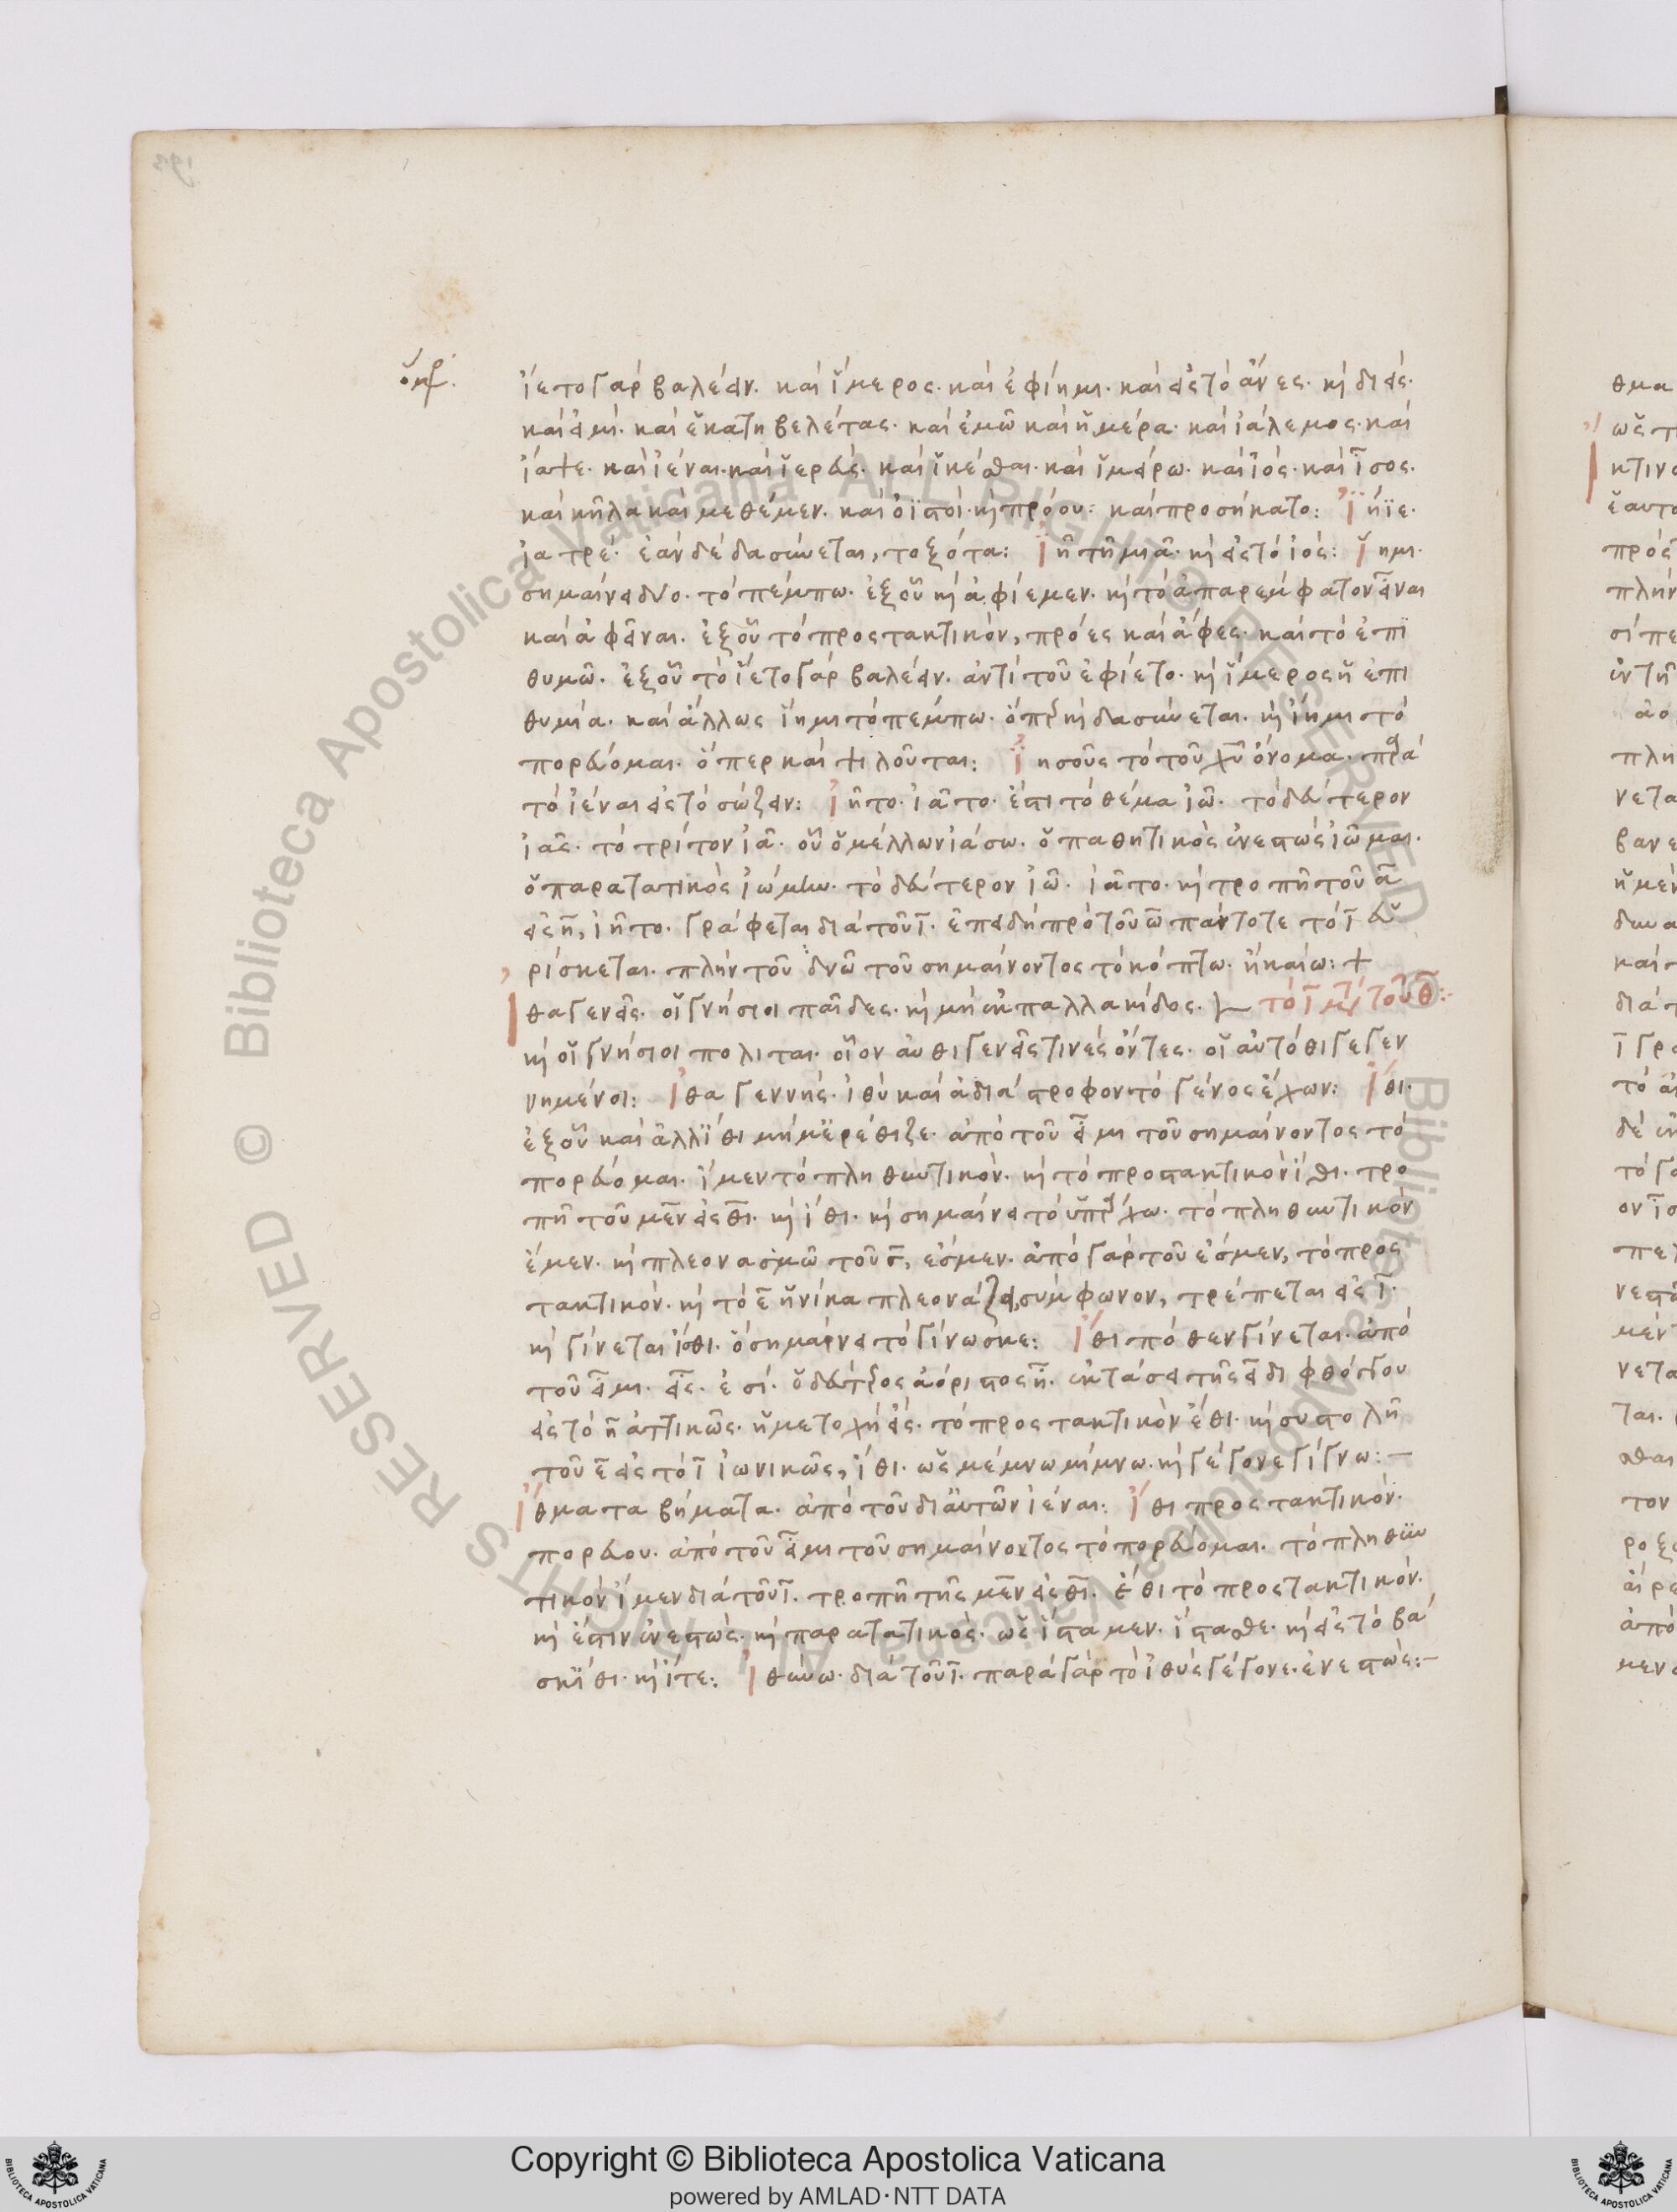 ἵετο γὰρ βαλέειν. καὶ ἵμερος. καὶ ἐφίημι. καὶ εἰς τὸ ἄνες. καὶ διεὶς.
καὶ εἰμί. καὶ ἑκατηβελέτας. καὶ ἐμῶ καὶ ἡμέρα. καὶ ἰάλεμος. καὶ
ἴαψε. καὶ ἰέναι. καὶ ἱερεύς. καὶ ἱκέσθαι. καὶ ἱμείρω. καὶ ἰός. καὶ ἶσος.
καὶ κῆλα καὶ μεθέμεν. καὶ ὀϊστοί. καὶ πρόου: καὶ προσήκατο: Ἰήϊε.
ἰατρέ. ἐὰν δὲ δασύνεται, τοξότα: Ἰῆ τῇ μιᾷ. καὶ εἰς τὸ ἰός: Ἵημι.
σημαίνει δύο. τὸ πέμπω. ἐξ οὗ καὶ ἀφίεμεν. καὶ τὸ ἀπαρέμφατον εἶναι
καὶ ἀφεῖναι. ἐξ οὗ τὸ προστακτικὸν, πρόες καὶ ἄφες. καὶ τὸ ἐπι
θυμῶ. ἐξ οὗ τὸ ἵετο γὰρ βαλέειν. ἀντὶ τοῦ ἐφίετο. καὶ ἵμερος ἡ ἐπι
θυμία. καὶ ἄλλως ἵημι τὸ πέμπω. ὅπερ καὶ δασύνεται. καὶ ἴημι τὸ
πορεύομαι. ὅπερ καὶ ψιλοῦται: Ἰησοῦς τὸ τοῦ χυ ὄνομα. παρὰ
τὸ ἰέναι εἰς τὸ σώζειν: Ἰῆτο. ἰᾶτο. ἔστι τὸ θέμα ἰῶ. τὸ δεύτερον
ἰᾶς. τὸ τρίτον ἰᾶ. οὗ ὁ μέλλων ἰάσω. ὁ παθητικὸς ἐνεστὼς ἰῶμαι.
ὁ παρατατικὸς ἰώμην. τὸ δεύτερον ἰῶ. ἰᾶτο. καὶ τροπῇ τοῦ α
εἰς η, ἰῆτο. γράφεται διὰ τοῦ ι. ἐπειδὴ πρὸ τοῦ ω πάντοτε τὸ ι εὑ
ρίσκεται. πλὴν τοῦ δηῶ τοῦ σημαίνοντος τὸ κόπτω. ἢ καίω: +
Ἰθαγενεῖς. οἱ γνήσιοι παῖδες. καὶ μὴ ἐκ παλλακίδος. τὸ ι μετὰ τοῦ θ:
καὶ οἱ γνήσιοι πολῖται. οἷον αὐθιγενεῖς τινὲς ὄντες. οἱ αὐτόθι γεγεν
νημένοι: Ἰθαγεννής. ἰθὺ καὶ ἀδιάστροφον τὸ γένος ἔχων: Ἴθι.
ἐξ οὗ καὶ ἀλλ' ἴθι μή μ' ἐρέθιζε. ἀπὸ τοῦ εἶμι τοῦ σημαίνοντος τὸ
πορεύομαι. ἴμεν τὸ πληθυντικὸν. καὶ τὸ προστακτικὸν ἴθι. τρο
πῇ τοῦ μεν εἰς θι. καὶ ἴθι. καὶ σημαίνει τὸ ὑπάρχω. τὸ πληθυντικὸν
ἐμεν. καὶ πλεονασμῶ τοῦ σ, ἐσμεν. ἀπὸ γὰρ τοῦ ἐσμεν, τὸ προς
τακτικὸν. καὶ τὸ ε ἡνίκα πλεονάζει σύμφωνον, τρέπεται εἰς ι.
καὶ γίνεται ἴσθι. ὃ σημαίνει τὸ γίνωσκε: Ἴθι πόθεν γίνεται. ἀπὸ
τοῦ εἶμι. εἷς. ἐσί. ὁ δεύτερος ἀόριστος ἦν. ἐκτάσει τῆς ει διφθόγγου
εἰς τὸ η ἀττικῶς. ἡ μετοχὴ εἷς. τὸ προστακτικὸν ἔθι. καὶ συστολῇ
τοῦ ε εἰς τὸ ι ἰωνικῶς, ἴθι. ὡς μέμνω μίμνω. καὶ γέγονε γίγνω:
Ἴθματα βήματα. ἀπὸ τοῦ δι' αὐτῶν ἰέναι: Ἴθι προστακτικὸν.
πορεύου. ἀπὸ τοῦ εἶμι τοῦ σημαίνοντος τὸ πορεύομαι. τὸ πληθυν
τικὸν ἴμεν διὰ τοῦ ι. τροπῇ τῆς μεν εἰς θι. ἔθι τὸ προστακτικὸν.
καὶ ἔστιν ἐνεστὼς. καὶ παρατατικὸς. ὡς ἵσταμεν. ἵστασθε. καὶ εἰς τὸ βά
σκ' ἴθι. καὶ ἴτε: Ἰθύνω. διὰ τοῦ ι. παρὰ γὰρ τὸ ἰθύς γέγονε. ἐνεστὼς:
Copyright © Biblioteca Apostolica Vaticana
powered by AMLAD·NTT DATA